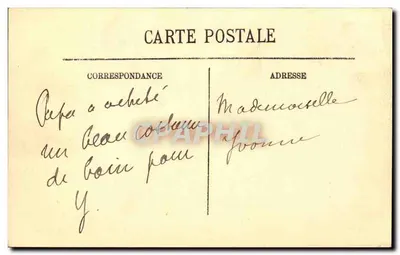 CARTE POSTALE
CORRESPONDANCE
Papa a acheté
un beau
de bain pour
Y
ADRESSE
Mademoiselle
Yvonne